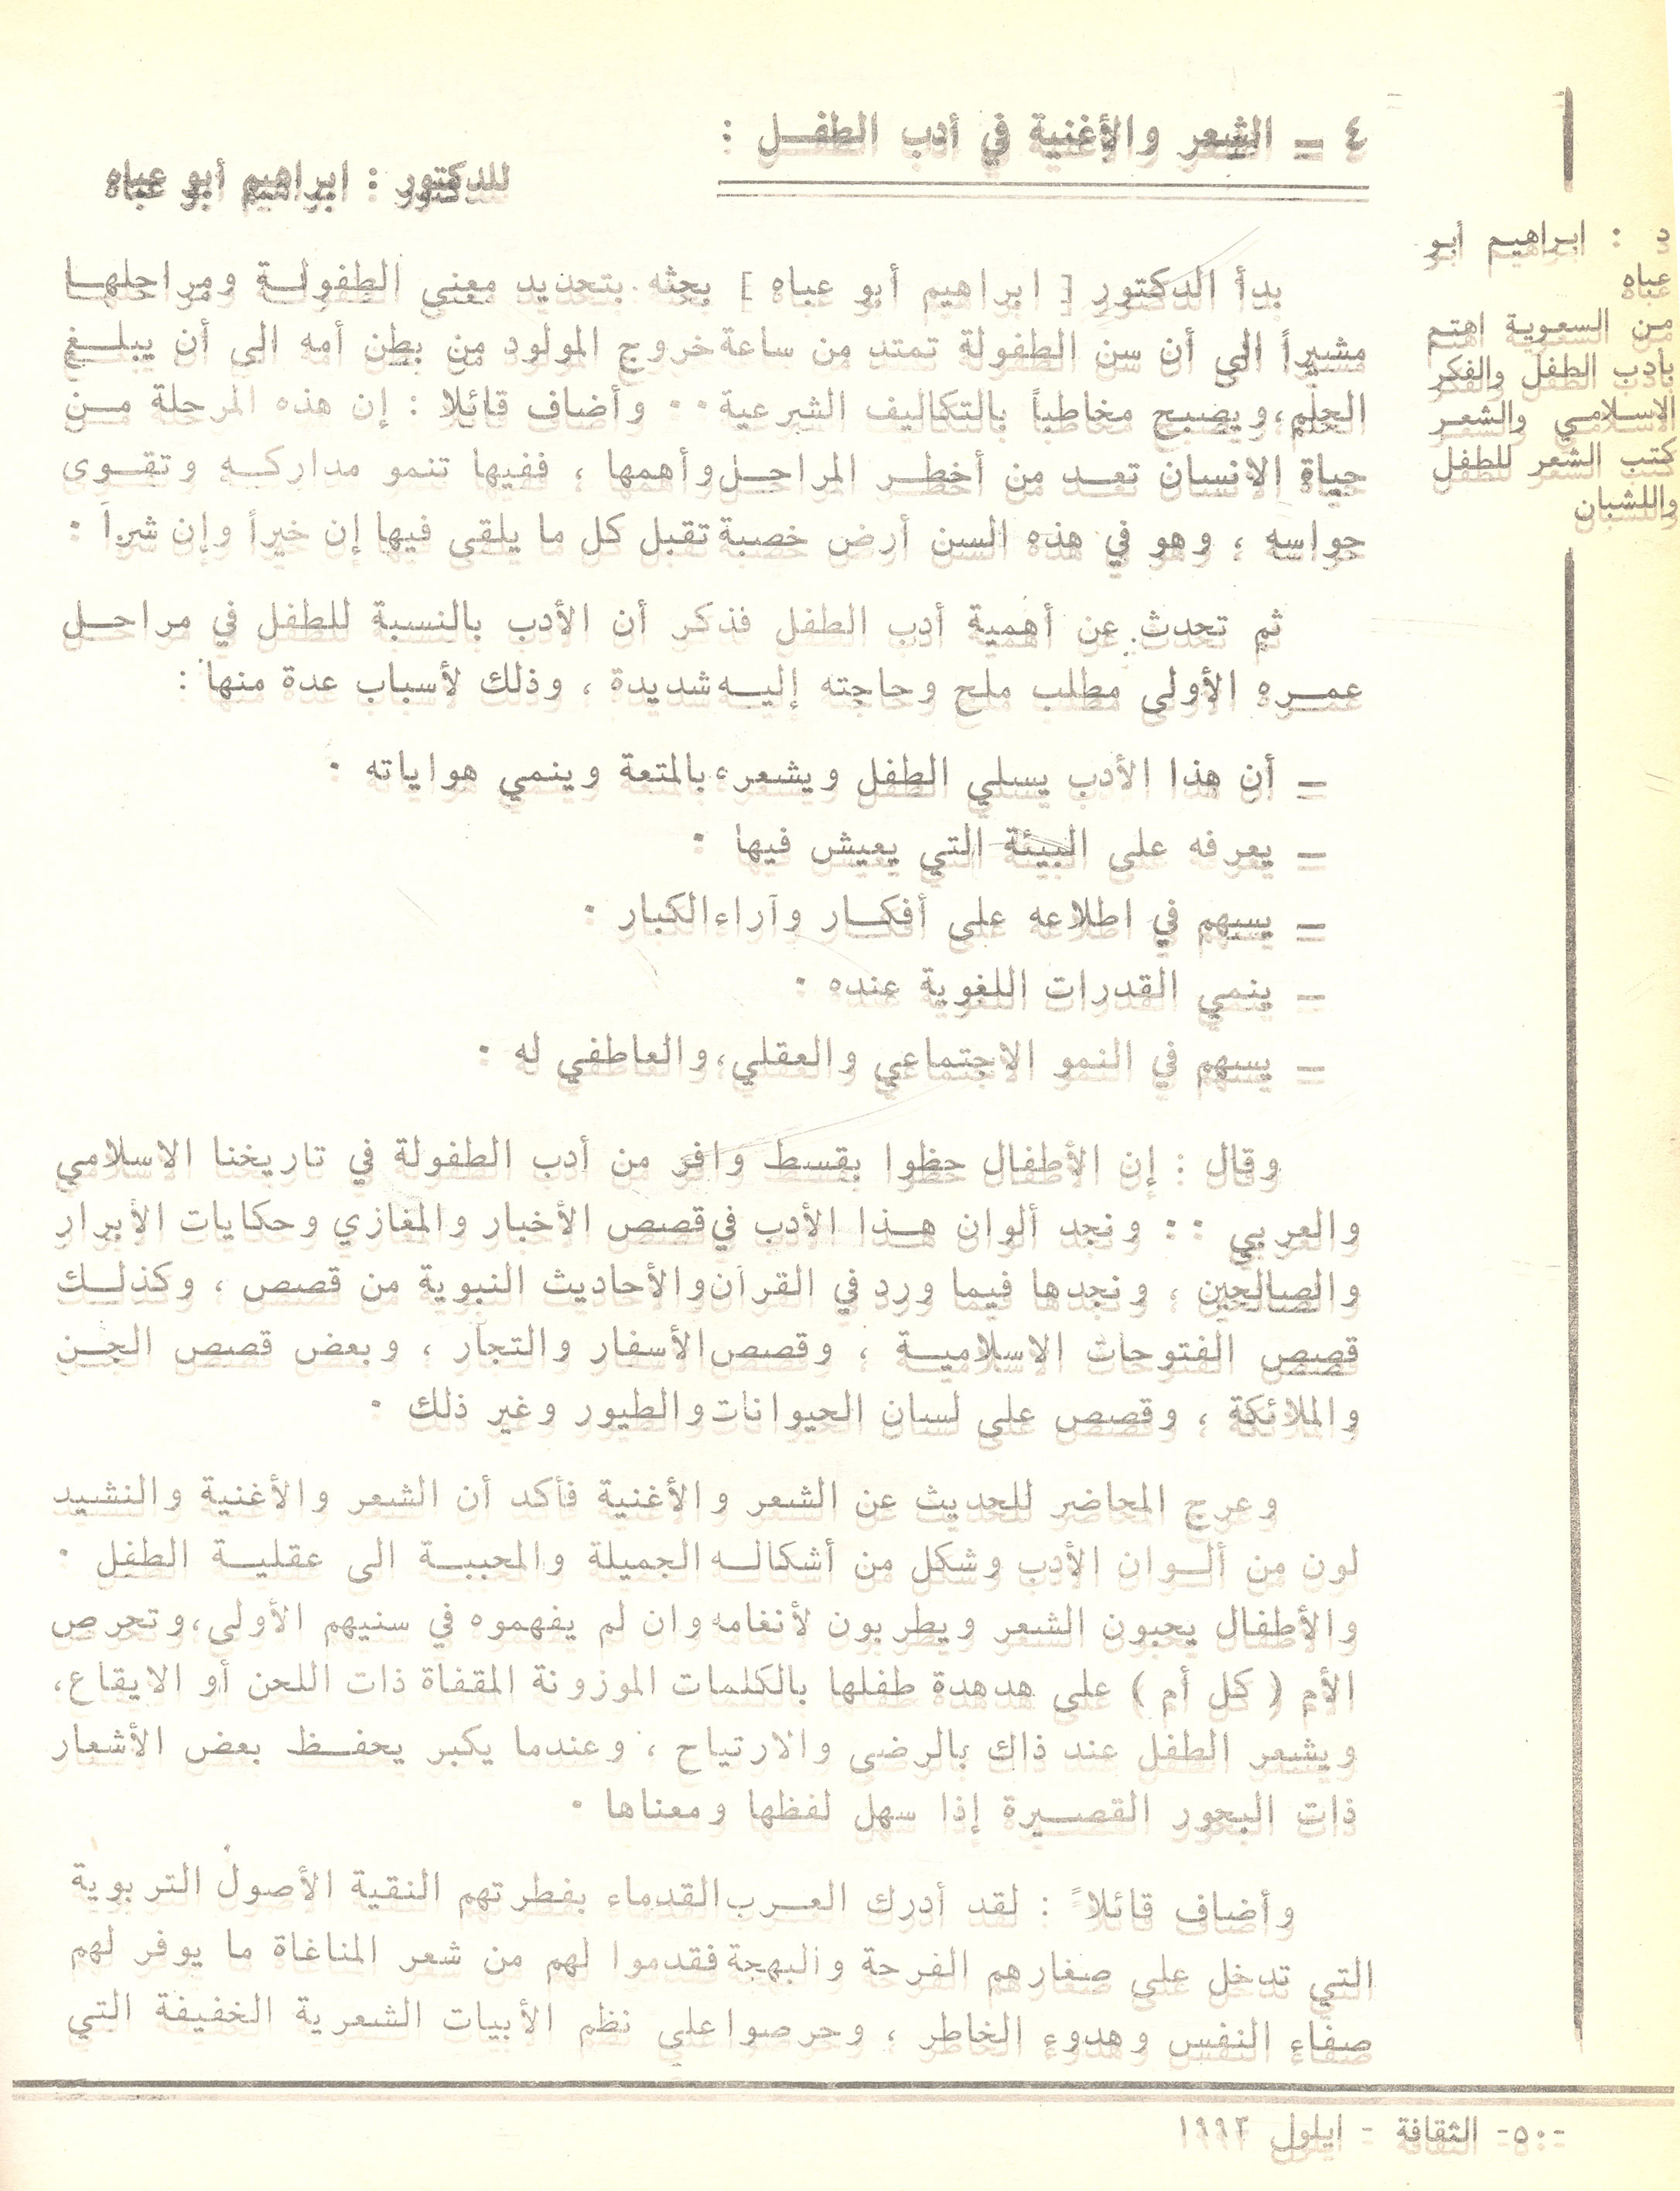 ٤ — الشعر والأغنية في أدب الطفل :
للدكتور : ابراهيم أبو عباه
د : ابراهيم أبو
عباه
من السعوية اهتم
بأدب الطفل والفكر
الاسلامي والشعر
كتب الشعر للطفل
واللشبان
بدأ الدكتور [ ابراهيم أبو عباه ] بحثه بتحديد معنى الطفولة ومراحلها
مشيراً الى أن سن الطفولة تمتد من ساعة خروج المولود من بطن أمه الى أن يبلغ
الحلم، ويصبح مخاطباً بالتكاليف الشرعية ٠٠ وأضاف قائلا : إن هذه المرحلة من
حياة الانسان تعد من أخطر المراحل وأهمها ، ففيها تنمو مداركه وتقوى
حواسه ، وهو في هذه السن أرض خصبة تقبل كل ما يلقى فيها إن خيراً وإن شراً :
ثم تحدث عن أهمية أدب الطفل فذكر أن الأدب بالنسبة للطفل في مراحل
عمره الأولى مطلب ملح وحاجته إليه شديدة ، وذلك لأسباب عدة منها :
— أن هذا الأدب يسلي الطفل ويشعره بالمتعة وينمي هواياته ٠
— يعرفه على البيئة التي يعيش فيها ٠
— يسهم في اطلاعه على أفكار وآراء الكبار ٠
— ينمي القدرات اللغوية عنده ٠
— يسهم في النمو الاجتماعي والعقلي، والعاطفي له ٠
وقال : إن الأطفال حظوا بقسط وافر من أدب الطفولة في تاريخنا الاسلامي
والعربي ٠٠ ونجد ألوان هذا الأدب في قصص الأخبار والمغازي وحكايات الأبرار
والصالحين ، ونجدها فيما ورد في القرآن والأحاديث النبوية من قصص ، وكذلك
قصص الفتوحات الاسلامية ، وقصص الأسفار والتجار ، وبعض قصص الجن
والملائكة ، وقصص على لسان الحيوانات والطيور وغير ذلك ٠
وعرج المحاضر للحديث عن الشعر والأغنية فأكد أن الشعر والأغنية والنشيد
لون من ألوان الأدب وشكل من أشكاله الجميلة والمحببة الى عقلية الطفل ٠
والأطفال يحبون الشعر ويطربون لأنغامه وان لم يفهموه في سنيهم الأولى، وتحرص
الأم ( كل أم ) على هدهدة طفلها بالكلمات الموزونة المقفاة ذات اللحن أو الايقاع،
ويشعر الطفل عند ذاك بالرضى والارتياح ، وعندما يكبر يحفظ بعض الأشعار
ذات البحور القصيرة إذا سهل لفظها ومعناها ٠
وأضاف قائلاً : لقد أدرك العرب القدماء بفطرتهم النقية الأصول التربوية
التي تدخل على صغارهم الفرحة والبهجة فقدموا لهم من شعر المناغاة ما يوفر لهم
صفاء النفس وهدوء الخاطر ، وحرصوا على نظم الأبيات الشعرية الخفيفة التي
-٥٠- الثقافة - ايلول ١٩٩٢